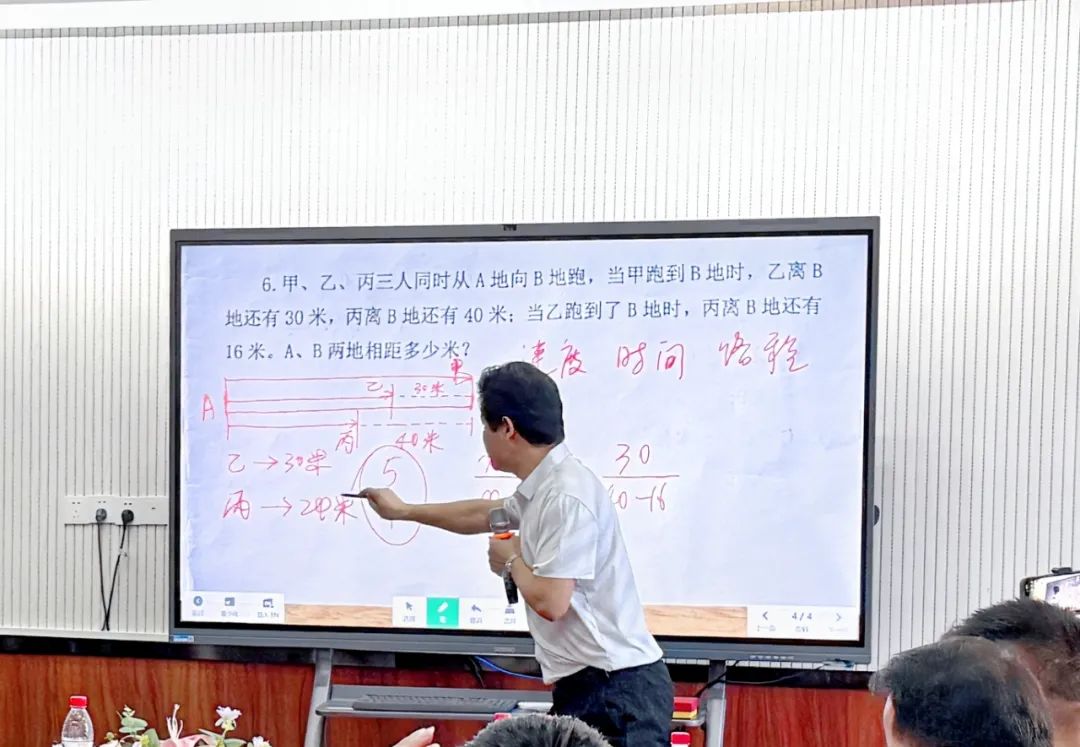 6.甲、乙、丙三人同时从A地向B地跑，当甲跑到B地时，乙离B
地还有30米，丙离B地还有40米；当乙跑到了B地时，丙离B地还有
16米。A、B两地相距多少米？
速度 时间 路程
甲
乙 30米
A
丙 40米
乙→30米
丙→24米
5
30
40-16
4/4